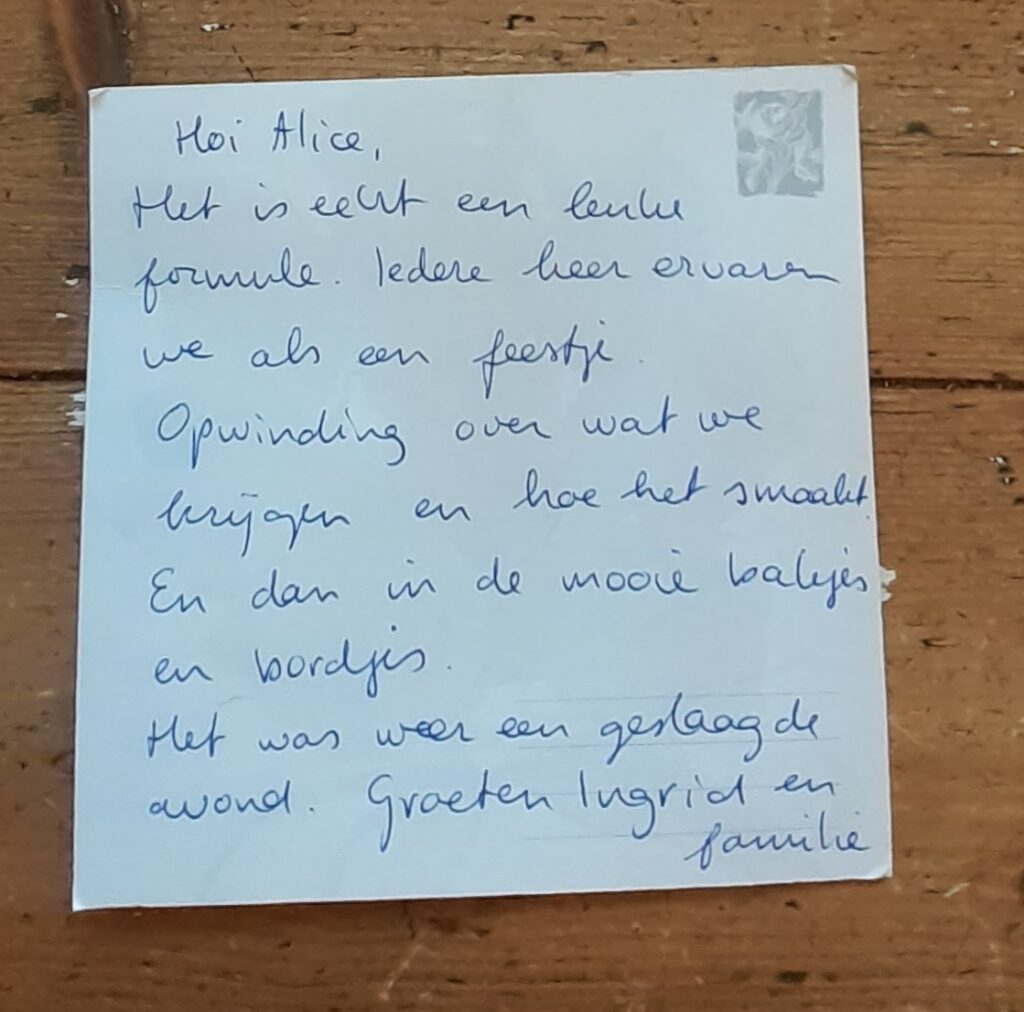 Hoi Alice,
Het is echt een leuke
formule. Iedere keer ervaren
we als een feestje.
Opwinding over wat we
krijgen en hoe het smaakt.
En dan in de mooie bakjes
en bordjes.
Het was weer een geslaagde
avond. Groeten Ingrid en
familie